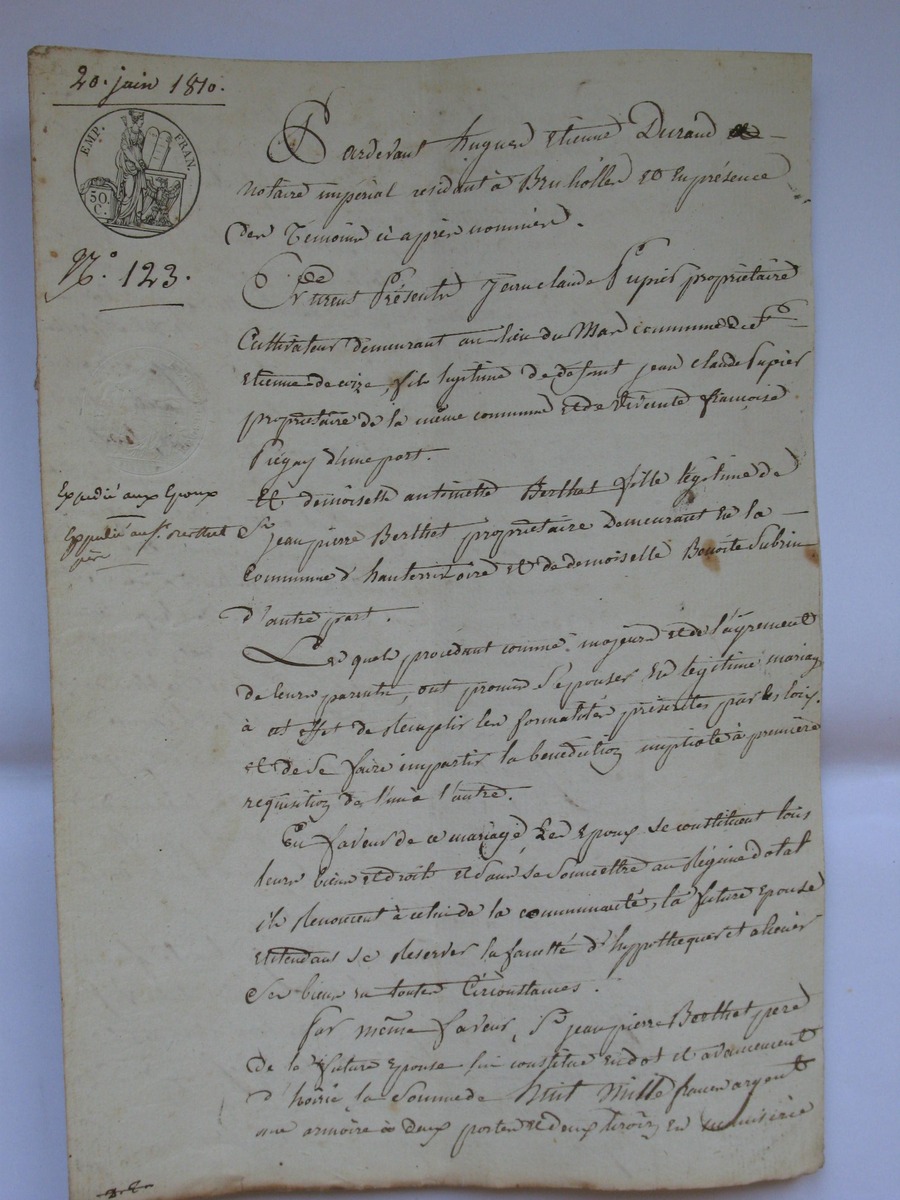 20. juin 1810.
EMP. FRAN.
50 C.
N.º 123.
Expedié aux Epoux
Expedié au Sr. Berthet
père
Pardevant hugues Etienne Durand
notaire impérial residant à Bruhölles et en présence
des Temoins ci après nommés.
furent Présents Jean claude Pupier propriétaire
Cultivateur demeurant au lieu du Mas commune de St
etienne de coize, fils legitime de défunt jean claude Pupier
propriétaire de la même commune et de vivante françoise
Piégay d'une part.
Et demoiselle antoinette Berthet fille légitime de
Sr jean pierre Berthet propriétaire demeurant en la
Commune d'hauterivoire et de demoiselle Benoite Subrin
d'autre part.
Les quels procédant comme majeurs et de l'agrement
de leurs parents, ont promis s'epouser en legitime mariage
à cet effet de remplir les formalités préscrites par les loix,
et de se faire impartir la bénédiction nuptiale à première
requisition de l'un à l'autre.
En faveur de ce mariage, Les Epoux se constituent tous
leurs biens et droits et sans se soumettre au Régime dotal
ils renoncent à celui de la communauté, la future epouse
entendans se reserver la faculté d'hypothequer et alièner
ses biens en toutes circonstances.
Par même faveur, Sr jean pierre Berthet pere
de la future epouse lui constitue en dot et avancement
d'hoirie la Somme de huit mille francs argent
une armoire à deux portes et deux tiroirs en menuiserie